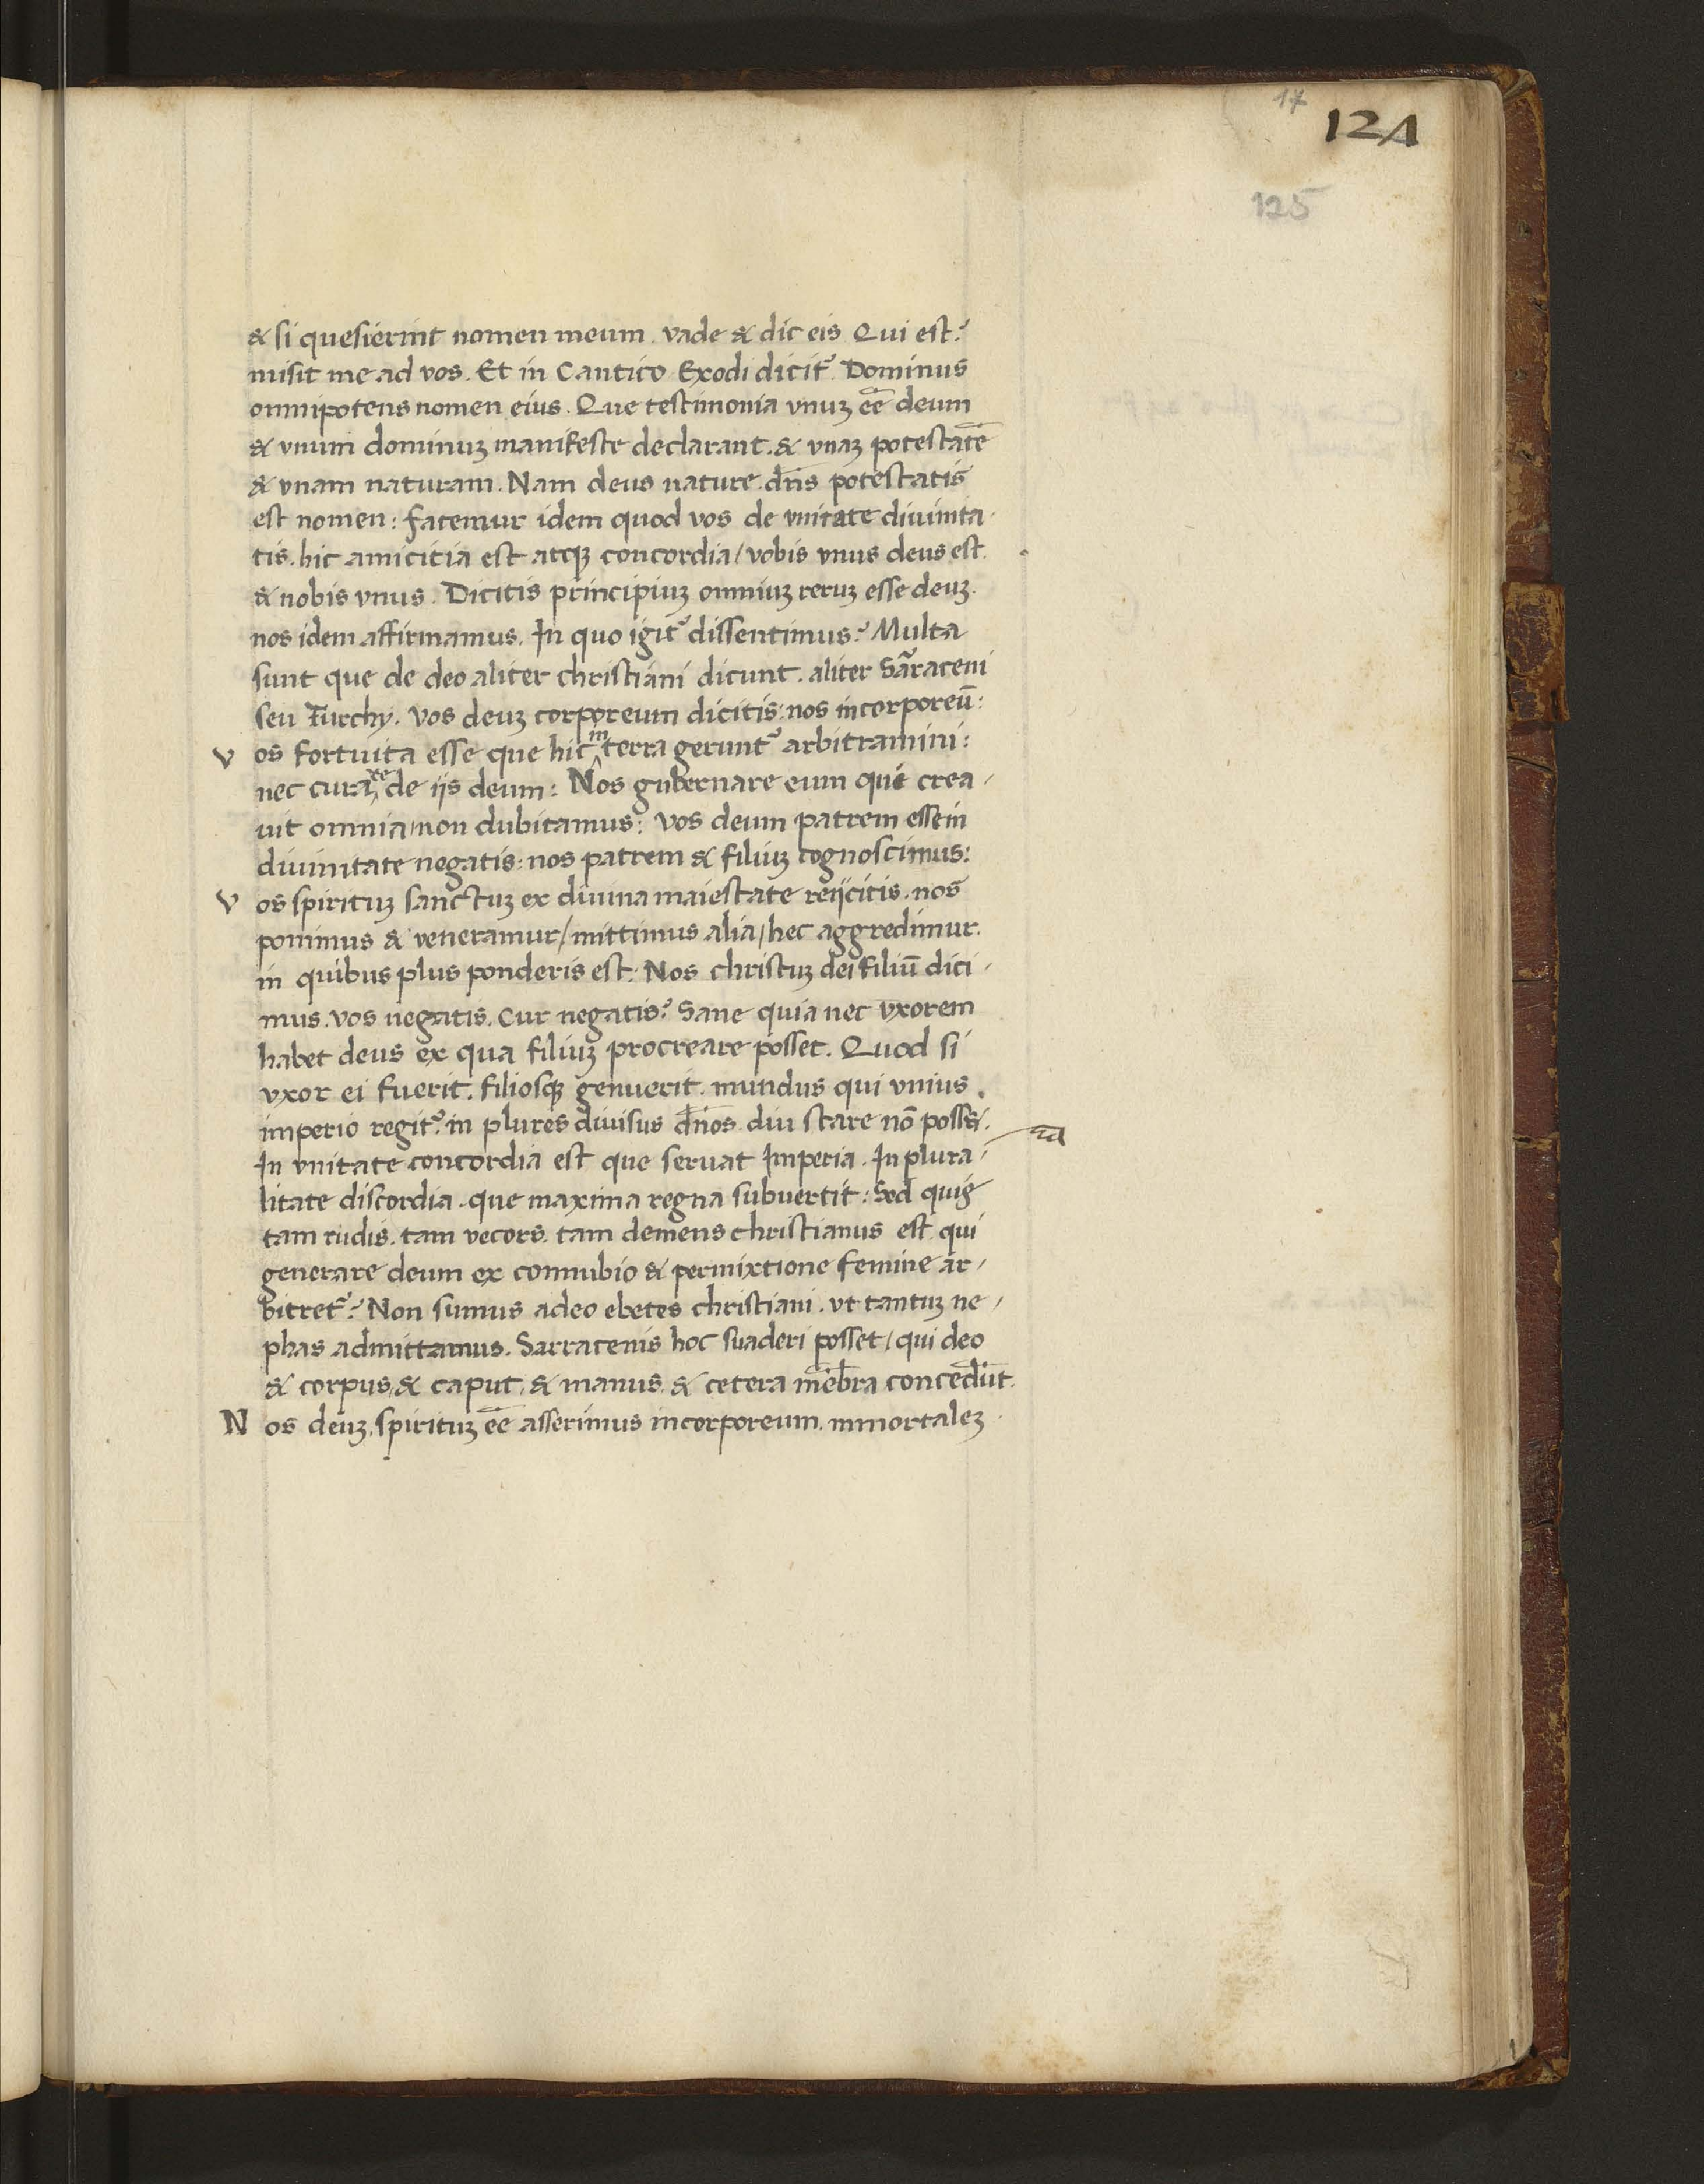 17
124
125
& si quesierint nomen meum. vade & dic eis Qui est?
misit me ad vos. Et in Cantico Exodi dicit᷑. Dominus
omnipotens nomen eius. Que testimonia vnuꝫ eē deum
& vnum dominuꝫ manifeste declarant. & vnaꝫ potestatē
& vnam naturam. Nam deus nature. dn̄s potestatis
est nomen: fatemur idem quod vos de vnitate diuinita-
tis. hic amicitia est atqꝫ concordia / vobis vnus deus est.
& nobis vnus. Dicitis principiuꝫ omniuꝫ reruꝫ esse deuꝫ.
nos idem affirmamus. In quo igit᷑ dissentimus? Multa
sunt que de deo aliter christiani dicunt. aliter Sarraceni
seu Turchy. Vos deuꝫ corporeum dicitis: nos incorporeū:
Vos fortuita esse que hic in terra gerunt᷑ arbitramini:
nec curare de iis deum: Nos gubernare eum qui crea-
uit omnia / non dubitamus: Vos deum patrem esse in
diuinitate negatis: nos patrem & filiuꝫ cognoscimus:
Vos spirituꝫ sanctuꝫ ex diuina maiestate reiicitis. nos
ponimus & veneramur / mittimus alia / hec aggredimur.
in quibus plus ponderis est: Nos christuꝫ dei filiū dici-
mus. vos negatis. Cur negatis? Sane quia nec vxorem
habet deus ex qua filiuꝫ procreare posset. Quod si
vxor ei fuerit. filiosqꝫ genuerit. mundus qui vnius
imperio regit᷑. in plures diuisus dn̄os. diu stare nō posset.
In vnitate concordia est que seruat Imperia. In plura-
litate discordia. que maxima regna subuertit: Sed quis
tam rudis. tam vecors. tam demens christianus est. qui
generare deum ex connubio & permixtione femine ar-
bitret᷑? Non sumus adeo ebetes christiani. vt tantuꝫ ne-
phas admittamus. Sarracenis hoc suaderi posset / qui deo
& corpus, & caput, & manus, & cetera mēbra concedūt.
Nos deuꝫ, spirituꝫ eē asserimus incorporeum. immortaleꝫ